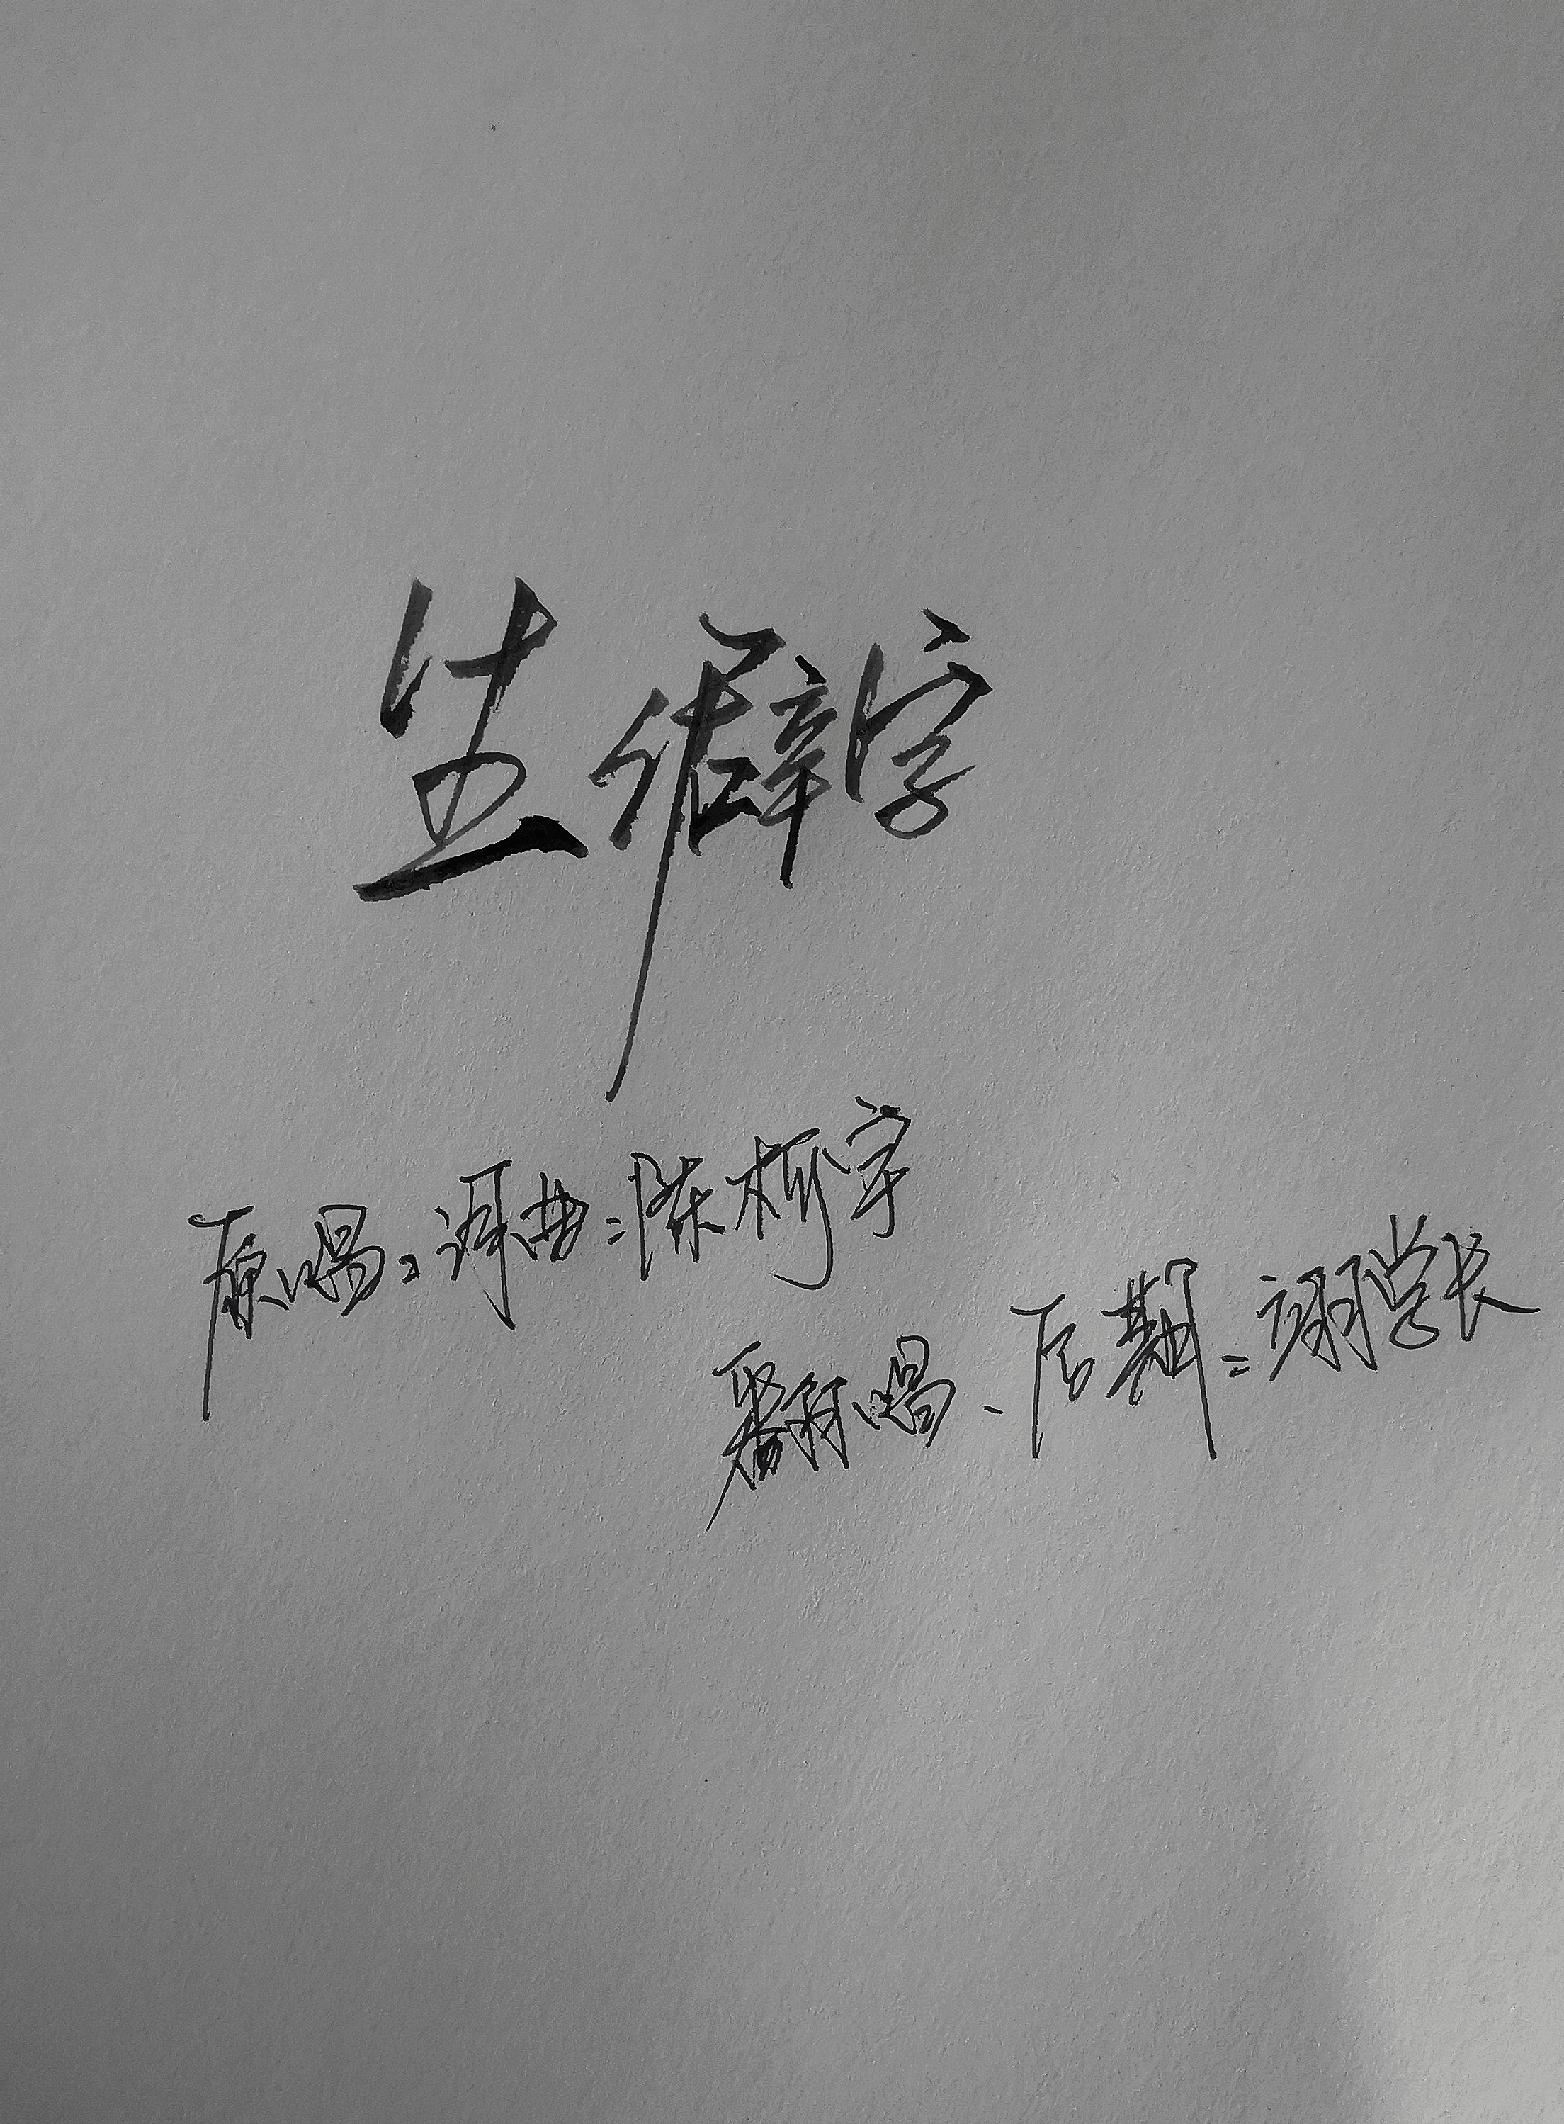 生僻字
原唱、词曲：陈柯宇
翻唱、后期：诩学长